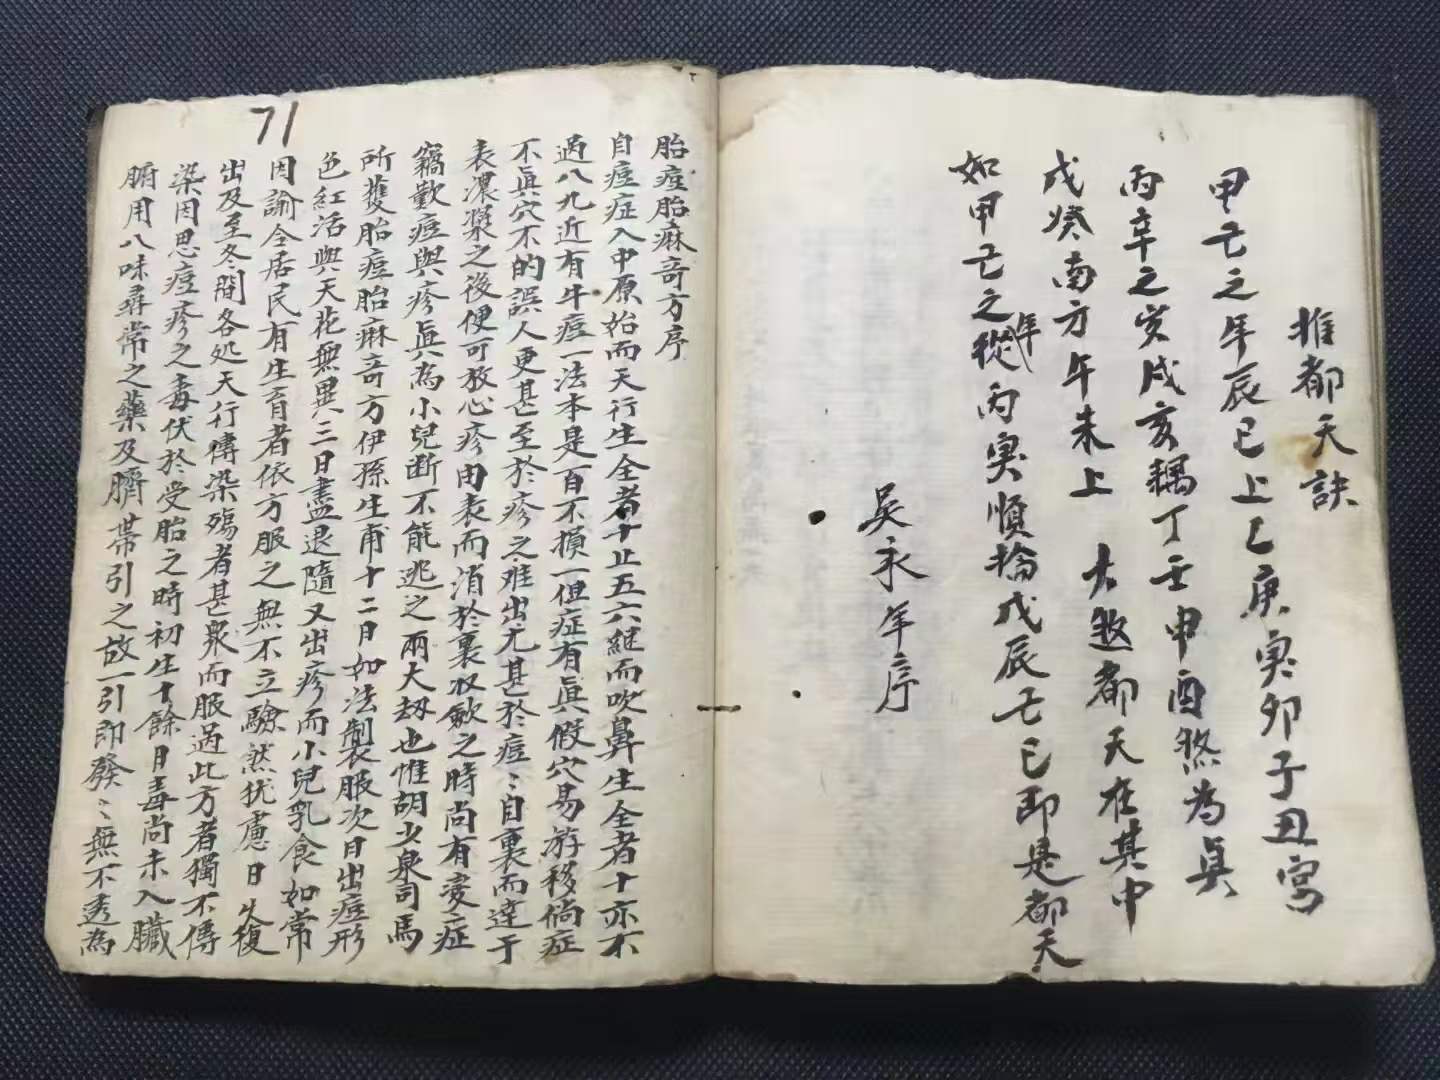 推都天訣
甲己之年辰巳上乙庚寅卯子丑宫
丙辛之岁戌亥覊丁壬申酉煞為真
戊癸南方午未上 大煞都天在其中
如甲己之年從丙寅順輪戊辰己巳即是都天
吴永年序
71
胎痘胎麻竒方序
自痘症入中原始而天行生全者十止五六継而吹鼻生全者十亦不
過八九近有牛痘一法本是百不損一但症有真假穴易游移倘症
不真穴不的誤人更甚至於疹之难出尤甚於痘〻自裏而達于
表濃漿之後便可放心疹由表而消於裏収斂之時尚有変症
竊歎痘與疹真為小兒断不能逃之兩大刼也惟胡少泉司馬
所獲胎痘胎麻竒方伊孫生甫十二日如法製服次日出痘形
色紅活與天花無異三日盡退隨又出疹而小兒乳食如常
因諭令居民有生育者依方服之無不立驗然犹慮日久復
出及至冬間各処天行傳染殤者甚衆而服過此方者獨不傳
染因思痘疹之毒伏於受胎之時初生十餘日毒尚未入臟
腑用八味尋常之藥及臍帯引之故一引即發〻無不透為